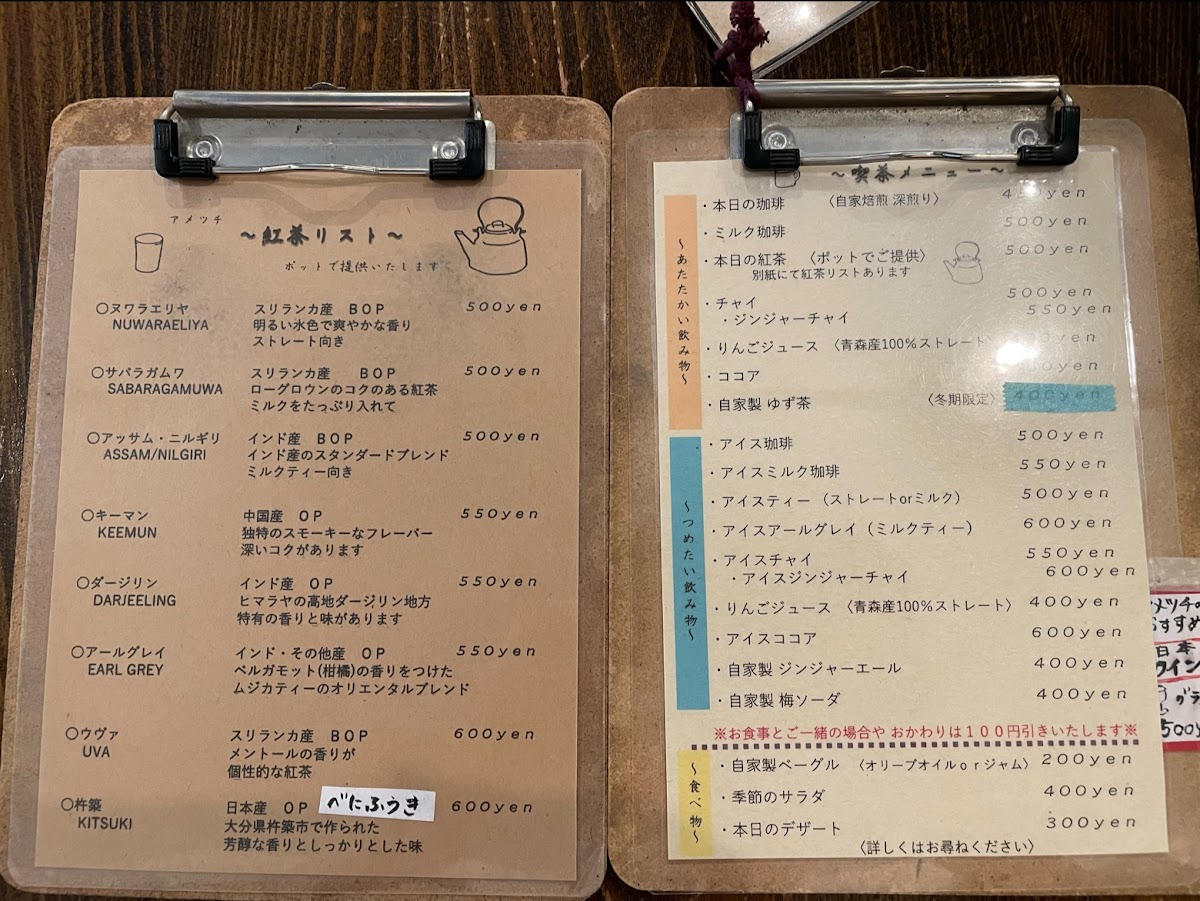 アメツチ
～紅茶リスト～
ポットで提供いたします
○ヌワラエリヤ スリランカ産 BOP 500yen
NUWARAELIYA 明るい水色で爽やかな香り
ストレート向き
○サバラガムワ スリランカ産 BOP 500yen
SABARAGAMUWA ローグロウンのコクのある紅茶
ミルクをたっぷり入れて
○アッサム・ニルギリ インド産 BOP 500yen
ASSAM/NILGIRI インド産のスタンダードブレンド
ミルクティー向き
○キーマン 中国産 OP 550yen
KEEMUN 独特のスモーキーなフレーバー
深いコクがあります
○ダージリン インド産 OP 550yen
DARJEELING ヒマラヤの高地ダージリン地方
特有の香りと味があります
○アールグレイ インド・その他産 OP 550yen
EARL GREY ベルガモット(柑橘)の香りをつけた
ムジカティーのオリエンタルブレンド
○ウヴァ スリランカ産 BOP 600yen
UVA メントールの香りが
個性的な紅茶
○杵築 日本産 OP べにふうき 600yen
KITSUKI 大分県杵築市で作られた
芳醇な香りとしっかりとした味
～喫茶メニュー～
～あたたかい飲み物～
・本日の珈琲 〈自家焙煎 深煎り〉 450yen
・ミルク珈琲 500yen
・本日の紅茶 〈ポットでご提供〉 500yen
別紙にて紅茶リストあります
・チャイ 500yen
・ジンジャーチャイ 550yen
・りんごジュース 〈青森産100%ストレート〉 yen
・ココア yen
・自家製 ゆず茶 〈冬期限定〉 400yen
～つめたい飲み物～
・アイス珈琲 500yen
・アイスミルク珈琲 550yen
・アイスティー (ストレートorミルク) 500yen
・アイスアールグレイ (ミルクティー) 600yen
・アイスチャイ 550yen
・アイスジンジャーチャイ 600yen
・りんごジュース 〈青森産100%ストレート〉 400yen
・アイスココア 600yen
・自家製 ジンジャーエール 400yen
・自家製 梅ソーダ 400yen
※お食事とご一緒の場合や おかわりは１００円引きいたします※
～食べ物～
・自家製ベーグル 〈オリーブオイルｏｒジャム〉 200yen
・季節のサラダ 400yen
・本日のデザート 300yen
〈詳しくはお尋ねください〉
メツチの
おすすめ
日本
ワイン
グラ
500y